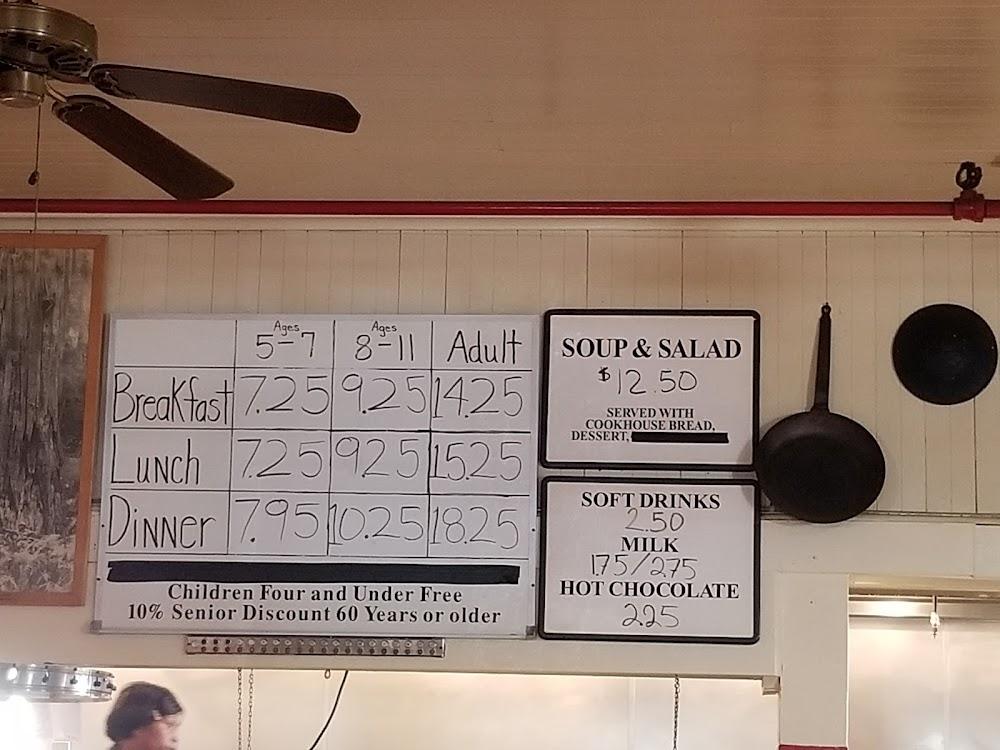 Ages Ages
5-7 8-11 Adult
Breakfast 7.25 9.25 14.25
Lunch 7.25 9.25 15.25
Dinner 7.95 10.25 18.25
Children Four and Under Free
10% Senior Discount 60 Years or older
SOUP & SALAD
$12.50
SERVED WITH
COOKHOUSE BREAD,
DESSERT,
SOFT DRINKS
2.50
MILK
1.75/2.75
HOT CHOCOLATE
2.25